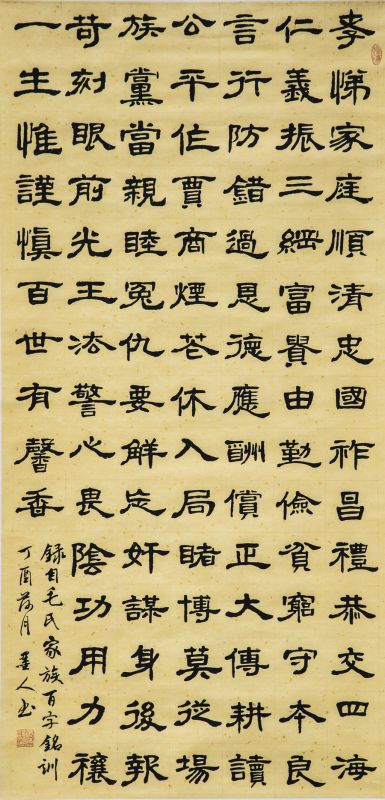 孝悌家庭順清忠國祚昌禮恭交四海
仁義振三綱富貴由勤儉貧窮守本良
言行防錯過恩德應酬償正大傳耕讀
公平作賈商煙花休入局賭博莫從場
族黨當親睦冤仇要解忘奸謀身後報
苛刻眼前光王法警心畏陰功用力禳
一生惟謹慎百世有馨香
録自毛氏家族百字銘訓
丁酉荷月人书